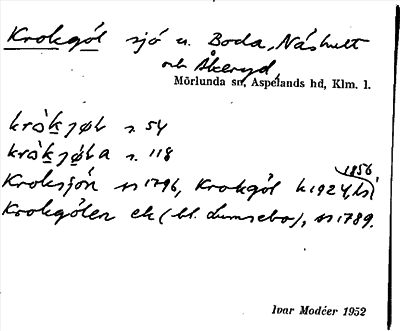 Krokgöl sjö u. Boda, Näshult
och Åkeryd,
Mörlunda sn, Aspelands hd, Klm. l.
kròkjøl s. 54
kròkjøla s. 118
1856
Kroksjön 1796, Krokgöl k 1924, hs
Krokgölen ek (bl. Lumsebo), 1789.
Ivar Modéer 1952